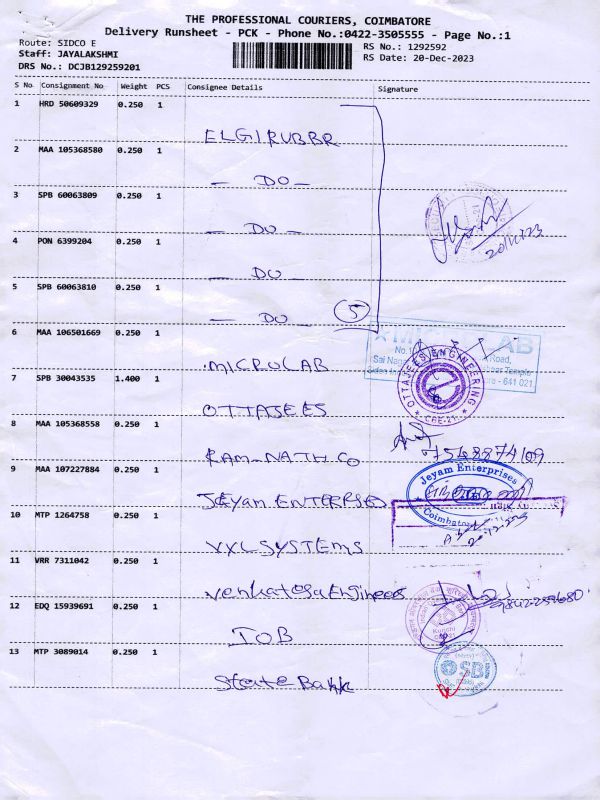 THE PROFESSIONAL COURIERS, COIMBATORE
Delivery Runsheet - PCK - Phone No.:0422-3505555 - Page No.:1
Route: SIDCO E
RS No.: 1292592
Staff: JAYALAKSHMI
RS Date: 20-Dec-2023
DRS No.: DCJB129259201
S No Consignment No Weight PCS Consignee Details Signature
1 HRD 50609329 0.250 1
ELGI RUBBR
2 MAA 105368580 0.250 1
— DO —
3 SPB 60063809 0.250 1
— DO —
4 PON 6399204 0.250 1
— DO —
20/12/23
5 SPB 60063810 0.250 1
— DO — 5
6 MAA 106501669 0.250 1
MICROLAB
No.1
Road,
Sai Naga
Temple
- 641 021
7 SPB 30043535 1.400 1
OTTAJEES ENGINEERING
CBE-21
OTTAJEES
8 MAA 105368558 0.250 1
RAM-NATH CO
7548874109
9 MAA 107227884 0.250 1
Jeyam Enterprises
Coimbatore
JEYAM ENTERPRSES
10 MTP 1264758 0.250 1
VXL SYSTEMS
11 VRR 7311042 0.250 1
Venkatesa Engineers
12 EDQ 15939691 0.250 1
IOB
13 MTP 3089014 0.250 1
SBI
State Bank